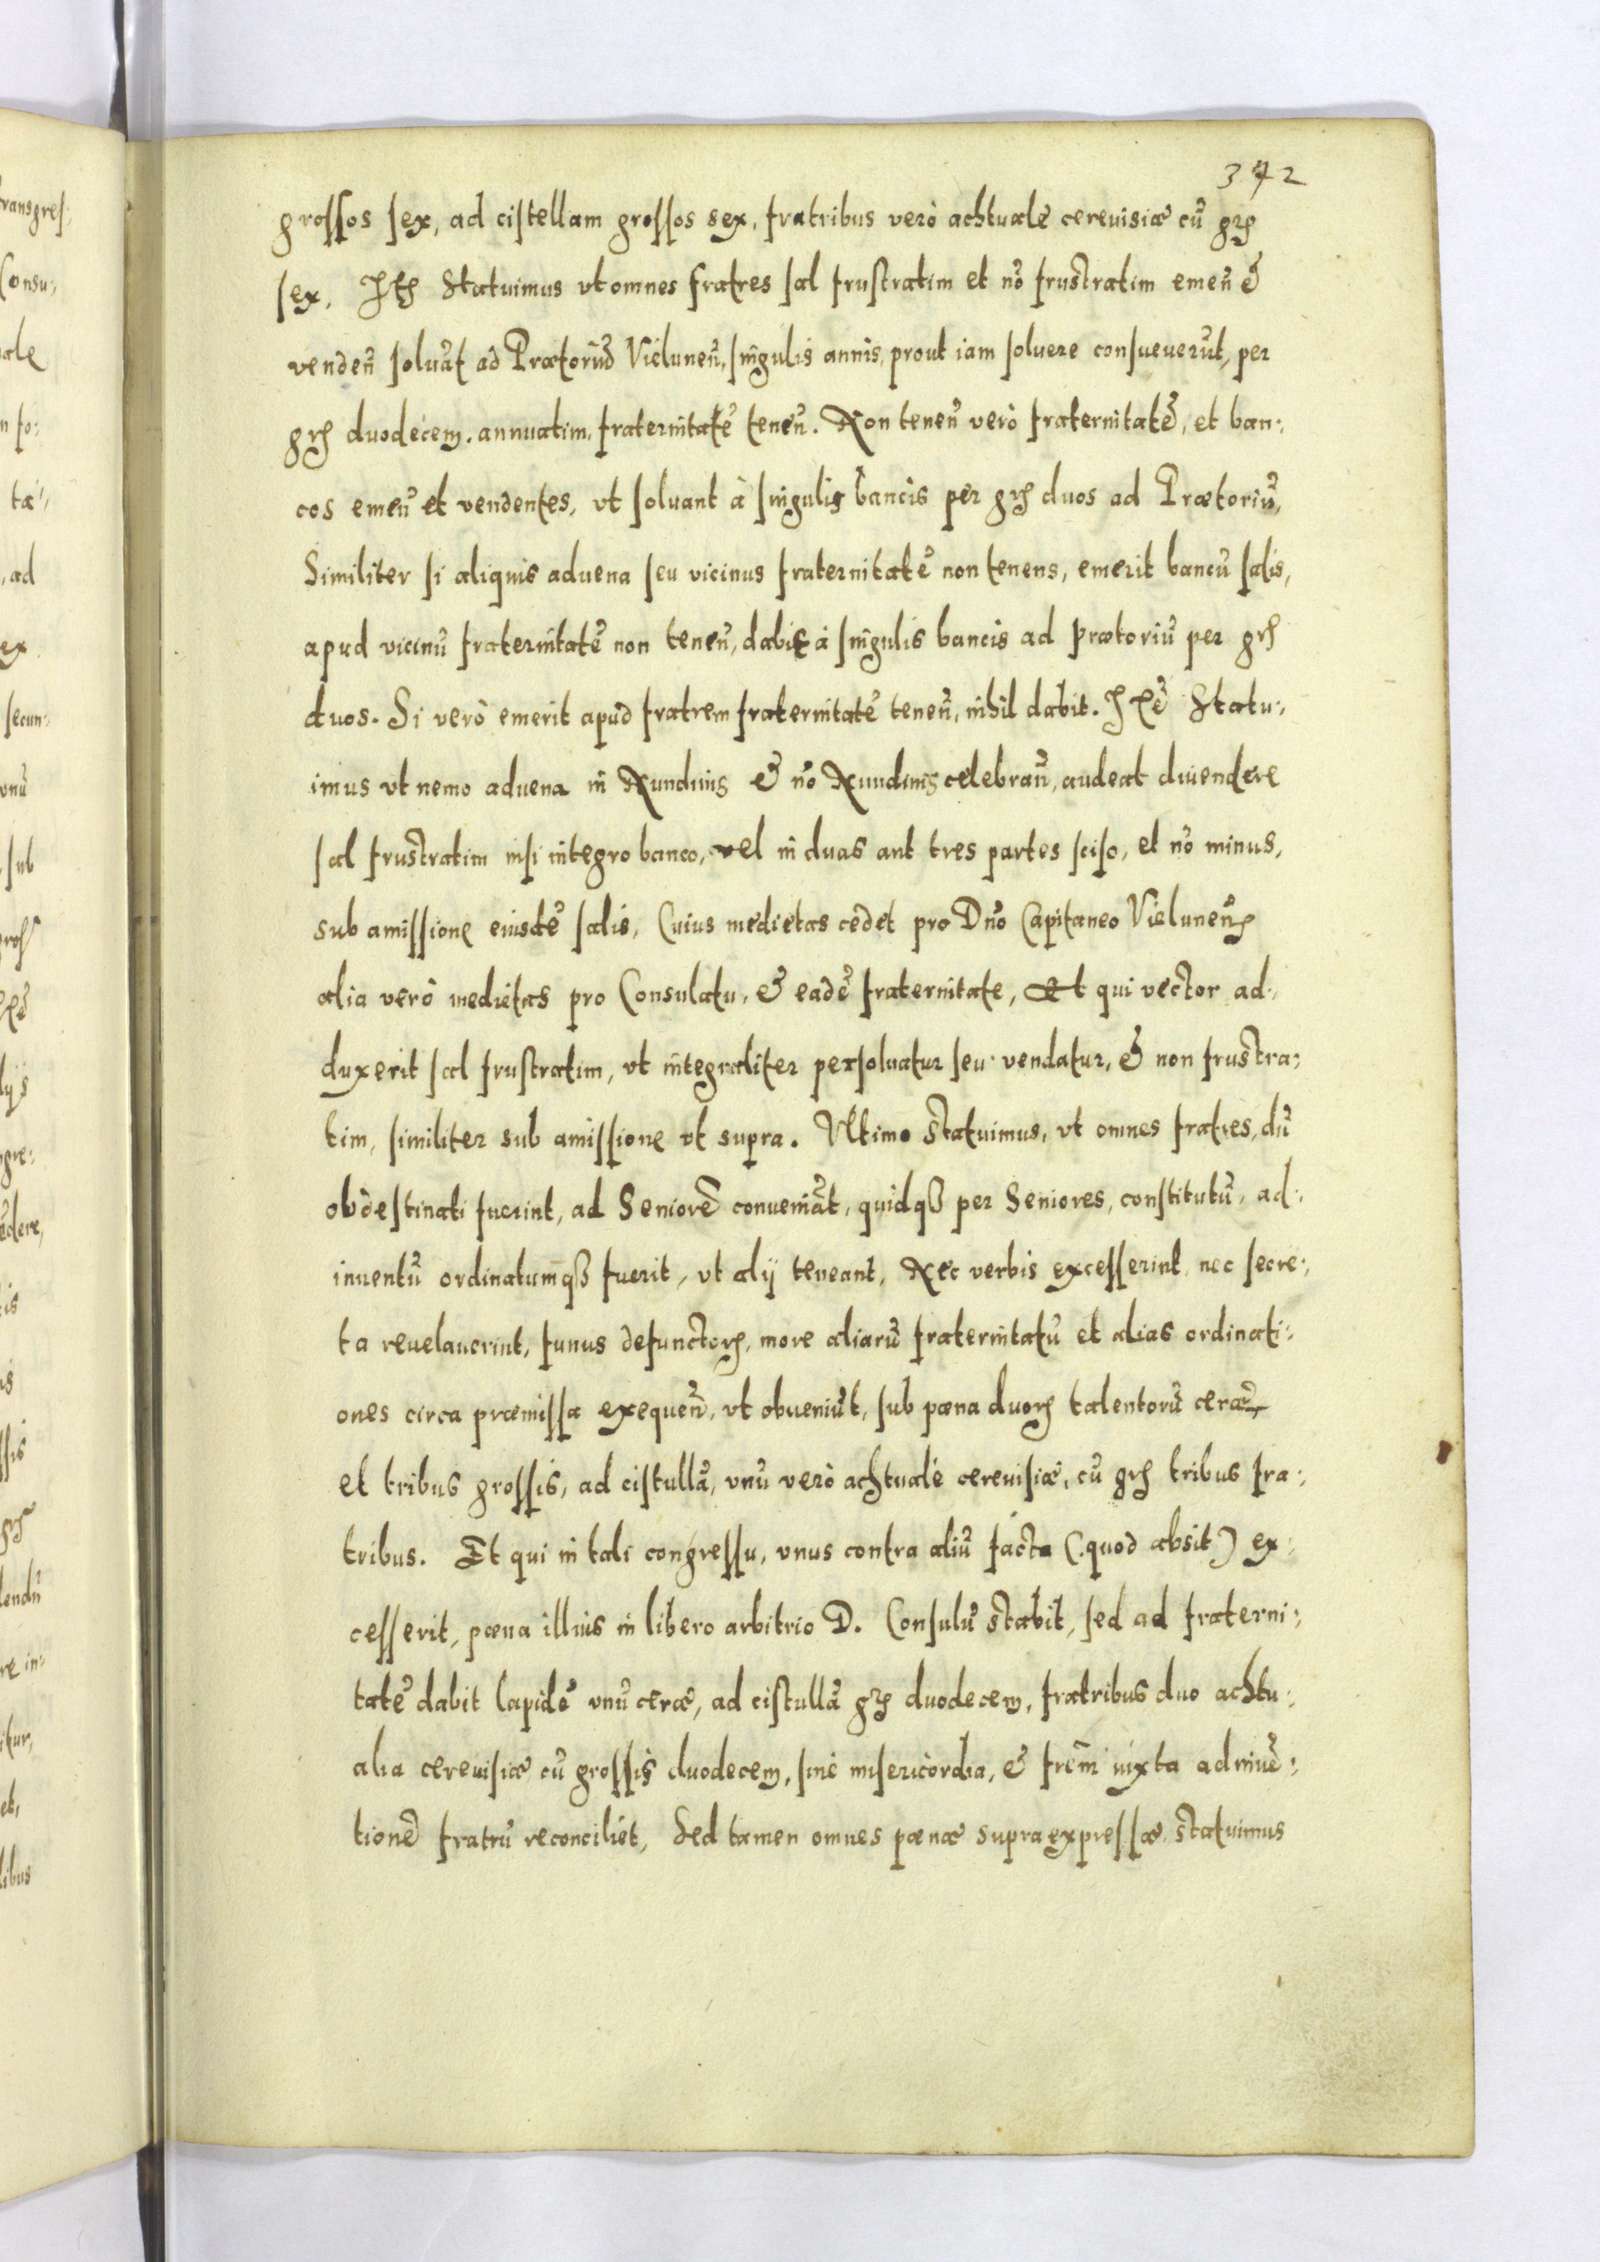 372
groſſos ſex, ad ciſtellam groſſos sex, fratribus verò achtuale cereuisiæ cũ grꝭ
ſex. Itꝭ Statuimus vt omnes fratres ſal fruſtratim et nõ fruſtratim emeñ &
vendeñ ſoluãt ad Prætoriũ Vieluneñ, ſingulis annis, prout iam ſoluere conſueuerũt, per
grꝭ duodecem. annuatim, fraternitatẽ teneñ. Non teneñ verò fraternitatẽ, et ban:
cos emeñ et vendentes, vt ſoluant à ſingulis bancis per grꝭ duos ad Prætoriũ,
Similiter ſi aliquis aduena ſeu vicinus fraternitatẽ non tenens, emerit bancũ ſalis,
apud vicinũ fraternitatẽ non teneñ, dabit à ſingulis bancis ad Prætoriũ per grꝭ
duos. Si verò emerit apud fratrem fraternitatẽ teneñ, nihil dabit. Itẽ Statu:
imus vt nemo aduena in Nundinis & nõ Nundinis celebrañ, audeat diuendere
ſal fruſtratim niſi integro banco, vel in duas aut tres partes ſciſo, et nõ minus,
sub amiſſione eiusdẽ ſalis, Cuius medietas cedet pro Dño Capitaneo Vieluneñꝭ
alia verò medietas pro Conſulatu, & eadẽ fraternitate, Et qui vector ad:
duxerit ſal fruſtratim, vt integraliter perſoluatur ſeu vendatur, & non fruſtra:
tim, ſimiliter sub amiſſione vt supra. Vltimo ſtatuimus, vt omnes fratres, dũ
obdeſtinati fuerint, ad Seniorẽ conueniãt, quidqꝫ per Seniores, conſtitutũ, ad:
inuentũ ordinatumqꝫ fuerit, vt alij teneant, Nec verbis exceſſerint, nec ſecre:
ta reuelauerint, funus defunctorꝭ, more aliarũ fraternitatũ et alias ordinati:
ones circa præmiſſa exequeñ, vt obueniũt, ſub pæna duorꝭ talentorũ ceræ,
et tribus groſſis, ad ciſtullã, vnũ verò achtuale cereuiſiæ, cũ grꝭ tribus fra:
tribus. Et qui in tali congreſſu, vnus contra aliũ facto (quod absit) ex:
ceſſerit, pæna illius in libero arbitrio D. Conſulũ ſtabit, ſed ad fraterni:
tatẽ dabit lapidẽ vnũ ceræ, ad ciſtullã grꝭ duodecem, fratribus duo achtu:
alia cereuiſiæ cũ groſſis duodecem, ſine miſericordia, & frẽm iuxta adinuẽ:
tionẽ fratrũ reconciliet, Sed tamen omnes pænæ supraexpreſſæ, ſtatuimus